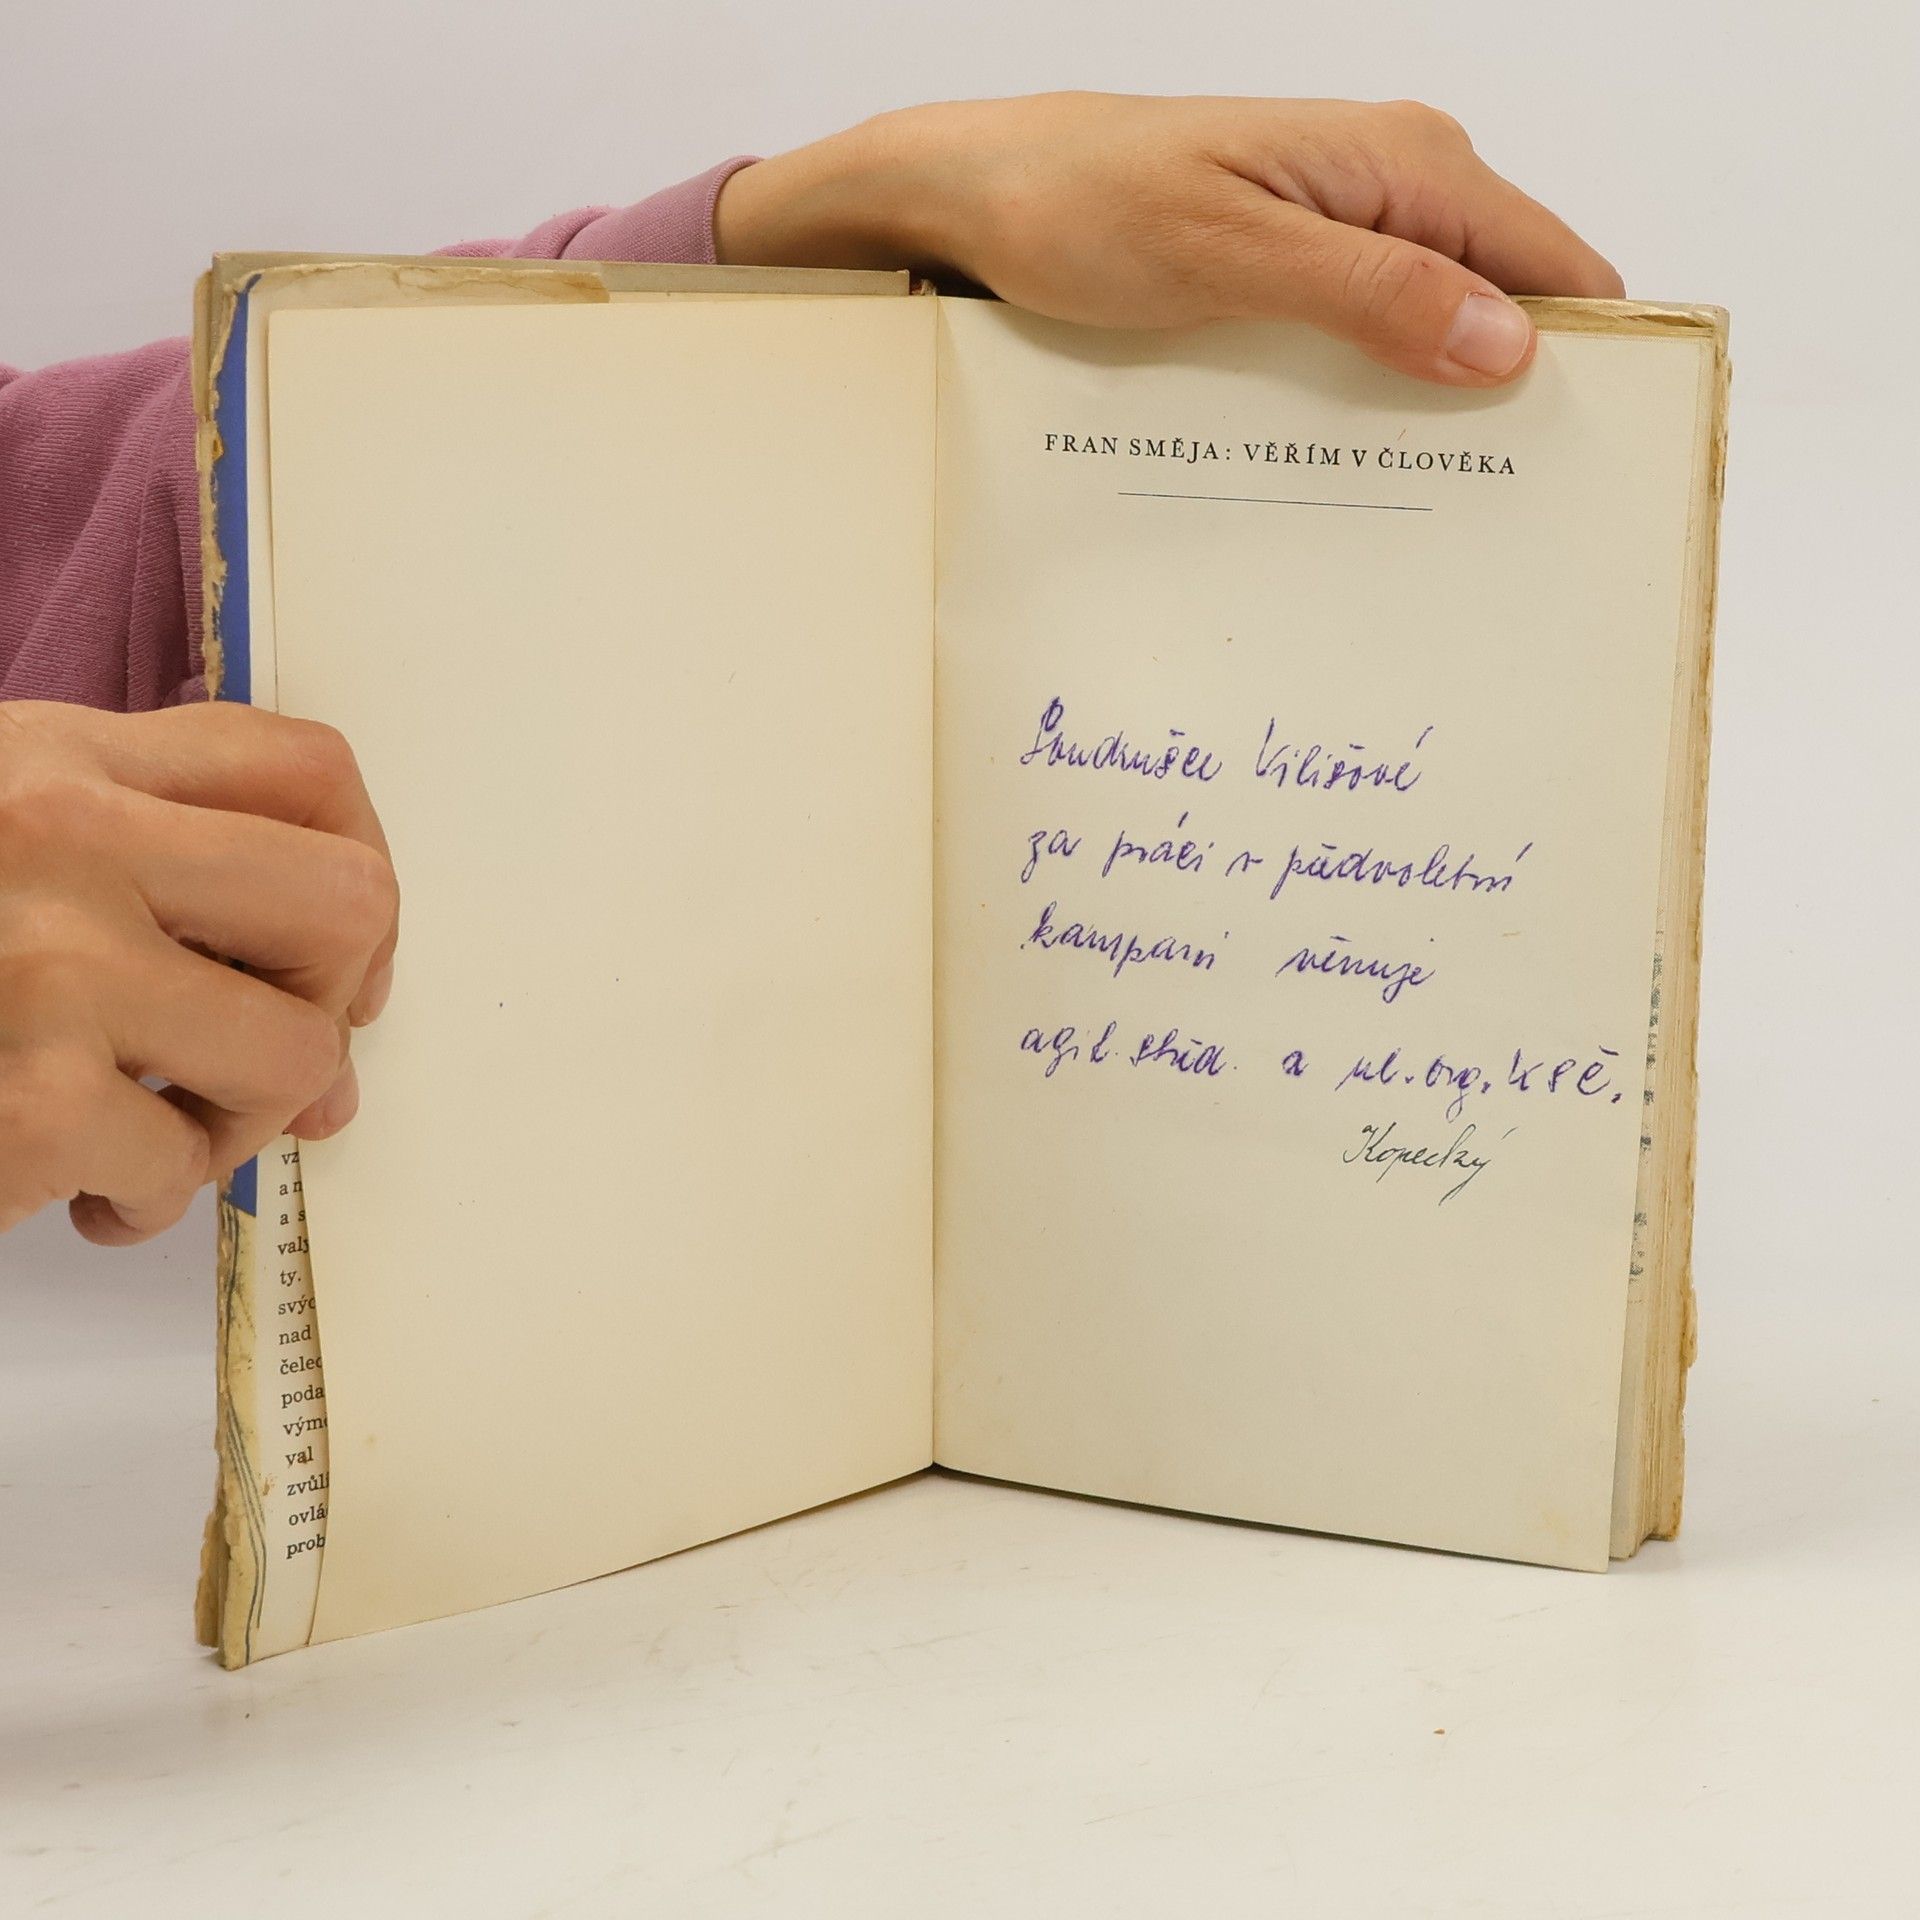 vz
an
a s
valy
ty.
svýc
nad
čeled
poda
výmě
val
zvůli
ovlá
prob
FRAN SMĚJA: VĚŘÍM V ČLOVĚKA
Soudružce Vilišové
za práci v předvolební
kampani věnuje
agit. střed. a ul. org. KSČ.
Kopecký